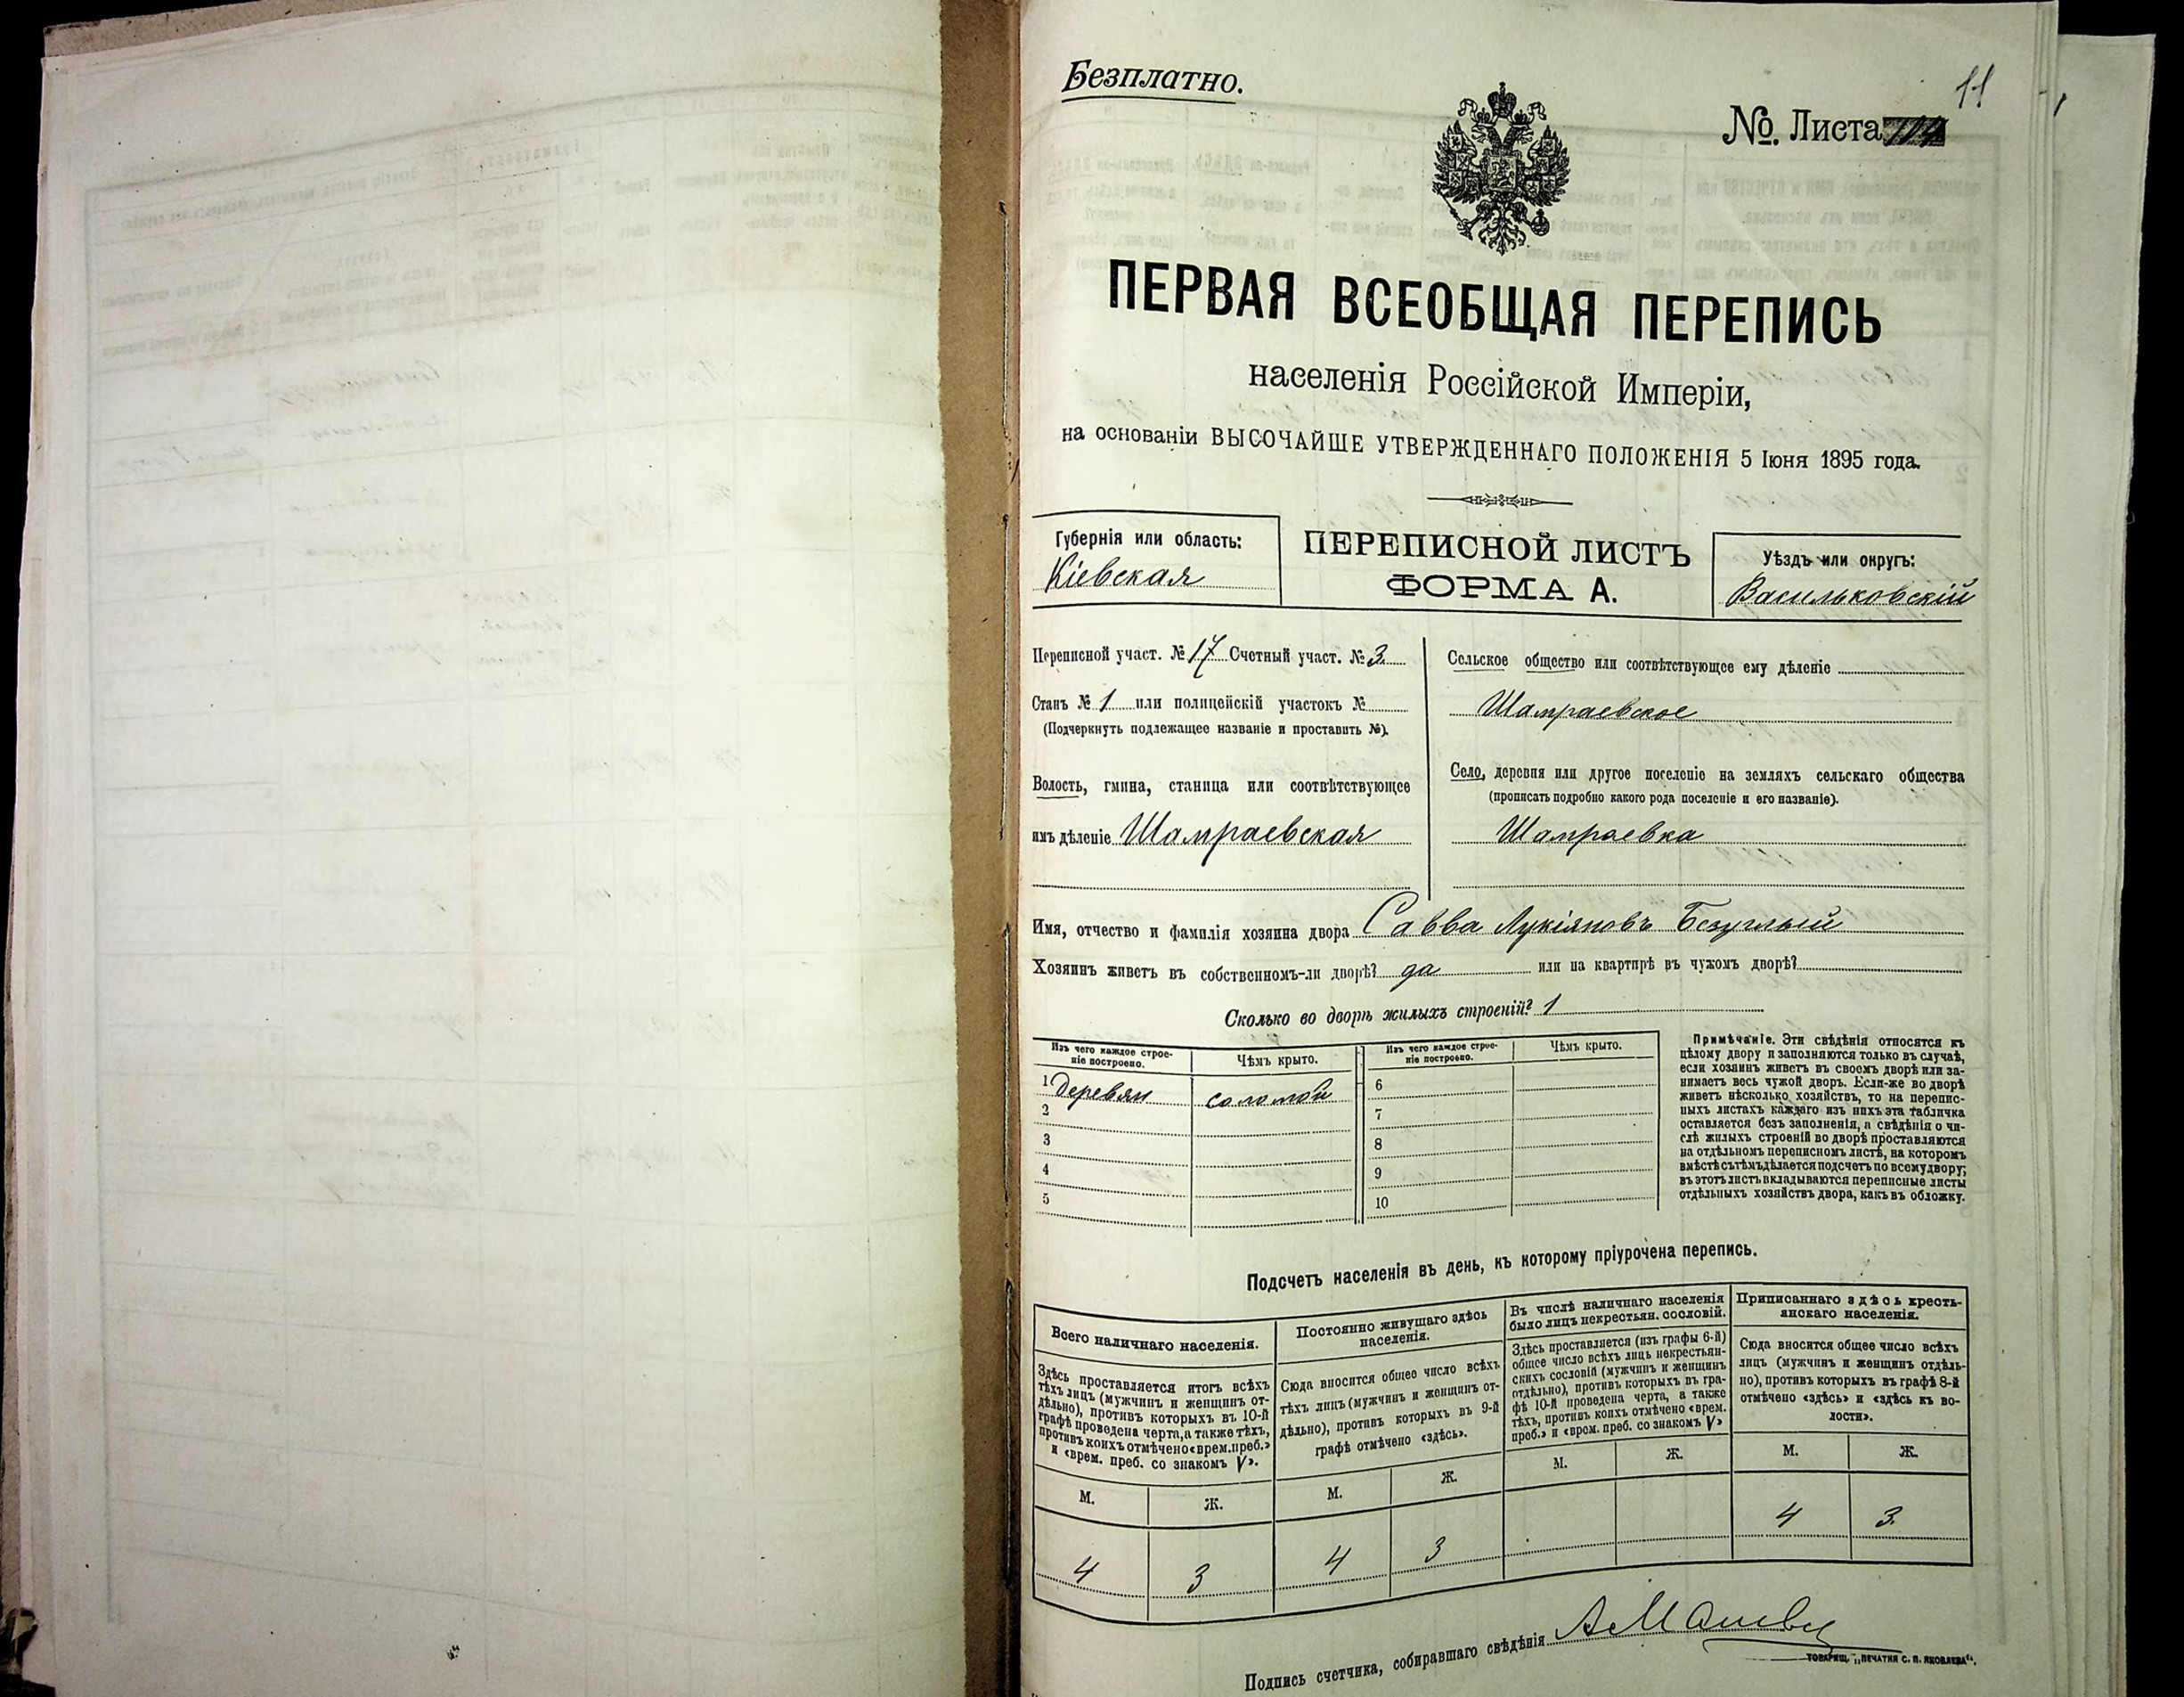 Безплатно.
11
№. Листа
ПЕРВАЯ ВСЕОБЩАЯ ПЕРЕПИСЬ
населенія Россійской Имперіи,
на основаніи ВЫСОЧАЙШЕ УТВЕРЖДЕННАГО ПОЛОЖЕНІЯ 5 Іюня 1895 года.
Губернія или область:
Кіевская
ПЕРЕПИСНОЙ ЛИСТЪ
ФОРМА А.
Уѣздъ или округъ:
Васильковскій
Переписной участ. № 17 Счетный участ. № 3.
Станъ № 1 или полицейскій участокъ №
(Подчеркнуть подлежащее названіе и проставить №).
Волость, гмина, станица или соотвѣтствующее
имъ дѣленіе Шамраевская
Сельское общество или соотвѣтствующее ему дѣленіе
Шамраевское
Село, деревня или другое поселеніе на земляхъ сельскаго общества
(прописать подробно какого рода поселеніе и его названіе).
Шамраевка
Имя, отчество и фамилія хозяина двора Савва Лукіяновъ Безуглый
Хозяинъ живетъ въ собственномъ-ли дворѣ? да или на квартирѣ въ чужомъ дворѣ?
Сколько во дворѣ жилыхъ строеній? 1
Изъ чего каждое строе-
ніе построено.
Чѣмъ крыто.
1 деревян соломой
2
3
4
5
Изъ чего каждое строе-
ніе построено.
Чѣмъ крыто.
6
7
8
9
10
Примѣчаніе. Эти свѣдѣнія относятся къ
цѣлому двору и заполняются только въ случаѣ,
если хозяинъ живетъ въ своемъ дворѣ или за-
нимаетъ весь чужой дворъ. Если-же во дворѣ
живетъ нѣсколько хозяйствъ, то на перепис-
ныхъ листахъ каждаго изъ нихъ эта табличка
оставляется безъ заполненія, а свѣдѣнія о чи-
слѣ жилыхъ строеній во дворѣ проставляются
на отдѣльномъ переписномъ листѣ, на которомъ
вмѣстѣ съ тѣмъ дѣлается подсчетъ по всему двору;
въ этотъ листъ вкладываются переписные листы
отдѣльныхъ хозяйствъ двора, какъ въ обложку.
Подсчетъ населенія въ день, къ которому пріурочена перепись.
Всего наличнаго населенія.
Здѣсь проставляется итогъ всѣхъ
тѣхъ лицъ (мужчинъ и женщинъ от-
дѣльно), противъ которыхъ въ 10-й
графѣ проведена черта, а также тѣхъ,
противъ коихъ отмѣчено «врем. преб.»
и «врем. преб. со знакомъ V».
М. Ж.
4 3
Постоянно живущаго здѣсь
населенія.
Сюда вносится общее число всѣхъ
тѣхъ лицъ (мужчинъ и женщинъ от-
дѣльно), противъ которыхъ въ 9-й
графѣ отмѣчено «здѣсь».
М. Ж.
4 3
Въ числѣ наличнаго населенія
было лицъ некрестьян. сословій.
Здѣсь проставляется (изъ графы 6-й)
общее число всѣхъ лицъ некрестьян-
скихъ сословій (мужчинъ и женщинъ
отдѣльно), противъ которыхъ въ гра-
фѣ 10-й проведена черта, а также
тѣхъ, противъ коихъ отмѣчено «врем.
преб.» и «врем. преб. со знакомъ V»
М. Ж.
Приписаннаго здѣсь кресть-
янскаго населенія.
Сюда вносится общее число всѣхъ
лицъ (мужчинъ и женщинъ отдѣль-
но), противъ которыхъ въ графѣ 8-й
отмѣчено «здѣсь» и «здѣсь къ во-
лости».
М. Ж.
4 3.
Подпись счетчика, собиравшаго свѣдѣнія
ТОВАРИЩ. „ПЕЧАТНЯ С. П. ЯКОВЛЕВА“.